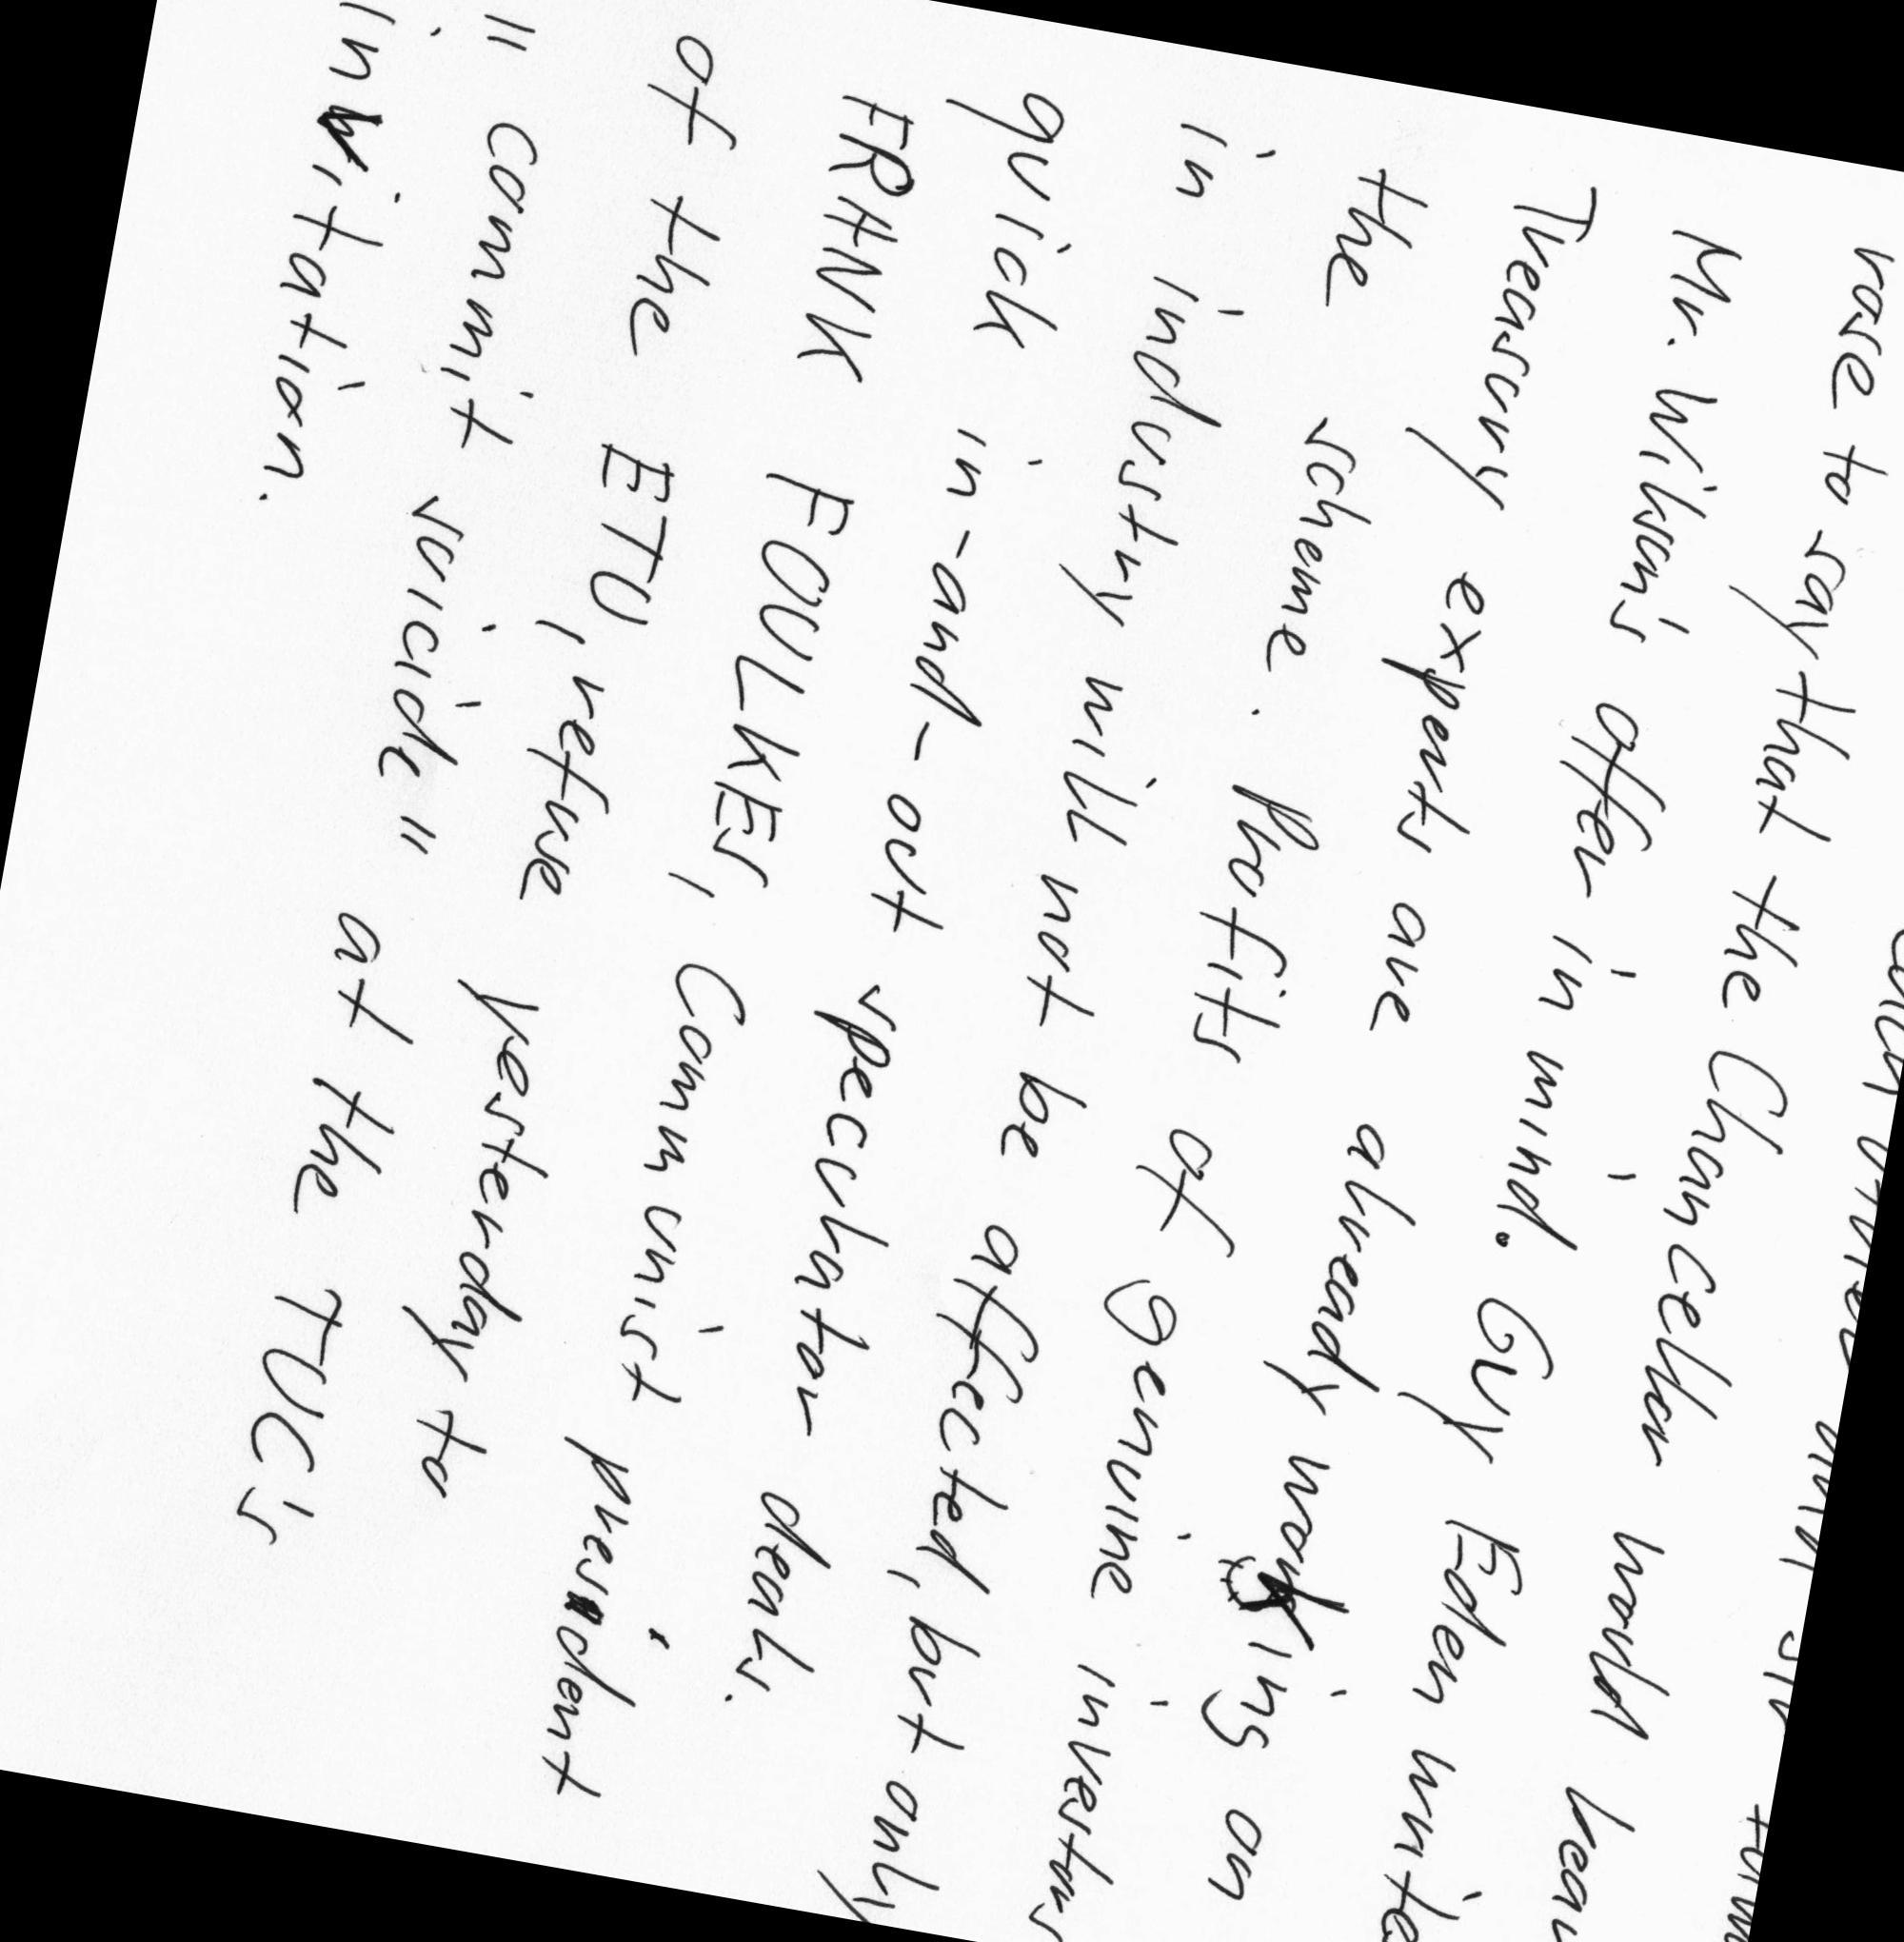 rose to say that the Chancellor would
Mr. Wilson's offer in mind. Guy Eden writes
Treasury experts are already working on
the scheme. Profits of genuine investors
in industry will not be affected, but only
quick in-and-out speculator deals.
FRANK FOULKES, Communist president
of the ETU, refuse yesterday to
"commit suicide" at the TUC's
invitation.